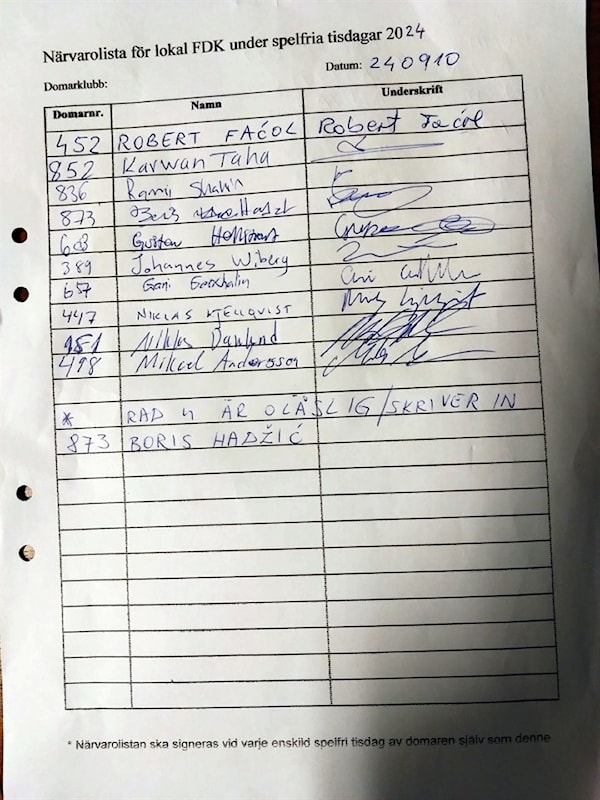 Närvarolista för lokal FDK under spelfria tisdagar 2024
Datum: 240910
Domarklubb:
Domarnr. Namn Underskrift
452 ROBERT FAĆOL Robert Facol
852 Karwan Taha
836 Rami Shahin
873
603 Gustav
389 Johannes Wiberg
657 Gani
447 NIKLAS KJELLQVIST
951 Niklas Danlund
498 Mikael Andersson
* RAD 4 ÄR OLÄSLIG/SKRIVER IN
873 BORIS HADŽIĆ
* Närvarolistan ska signeras vid varje enskild spelfri tisdag av domaren själv som denne